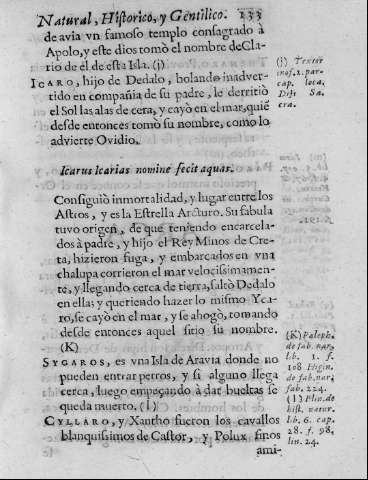 Natural, Historico, y Gentilico. 133
de avia vn famoso templo consagrado à
Apolo, y este dios tomò el nombre de Cla-
rio de él de esta Isla. (j)
ICARO, hijo de Dedalo, bolando inadver-
tido en compañia de su padre, le derritiò
el Sol las alas de cera, y cayò en el mar, quiē
desde entonces tomò su nombre, como lo
advierte Ovidio.
Icarus Icarias nomine fecit aquas.
Consiguiò inmortalidad, y lugar entre los
Astros, y es la Estrella Arcturo. Su fabula
tuvo origen, de que teniendo encarcela-
dos à padre, y hijo el Rey Minos de Cre-
ta, hizieron fuga, y embarcados en vna
chalupa corrieron el mar velocissimamen-
te, y llegando cerca de tierra, saltò Dedalo
en ella; y queriendo hazer lo mismo Yca-
ro, se cayò en el mar, y se ahogò, tomando
desde entonces aquel sitio su nombre.
(K)
SYGAROS, es vna Isla de Aravia donde no
pueden entrar perros, y si alguno llega
cerca, luego empeçando à dar bueltas se
queda muerto. (l)
CYLLARO, y Xantho fueron los cavallos
blanquissimos de Castor, y Polux sinos
ami-
(j) Textor
inof. 1. par-
cap. loca,
Diis Sa-
cra.
(K) Paleph.
de fab. nar,
lib. 1. f.
108 Higin.
de fab. nar,
fab. 224.
(l) Plin. de
hist. natur.
lib. 6. cap.
28. f. 98,
lin. 24.